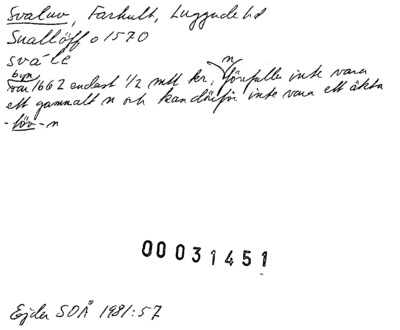 Svaluv, Farhult, Luggude hd
Suallöff o 1570
svále
byn
var 1662 endast 1/2 mtl kr, n förefaller inte vara
ett gammalt n och kan därför inte vara ett äkta
-löv-n
00031451
Ejder SOÅ 1981:57